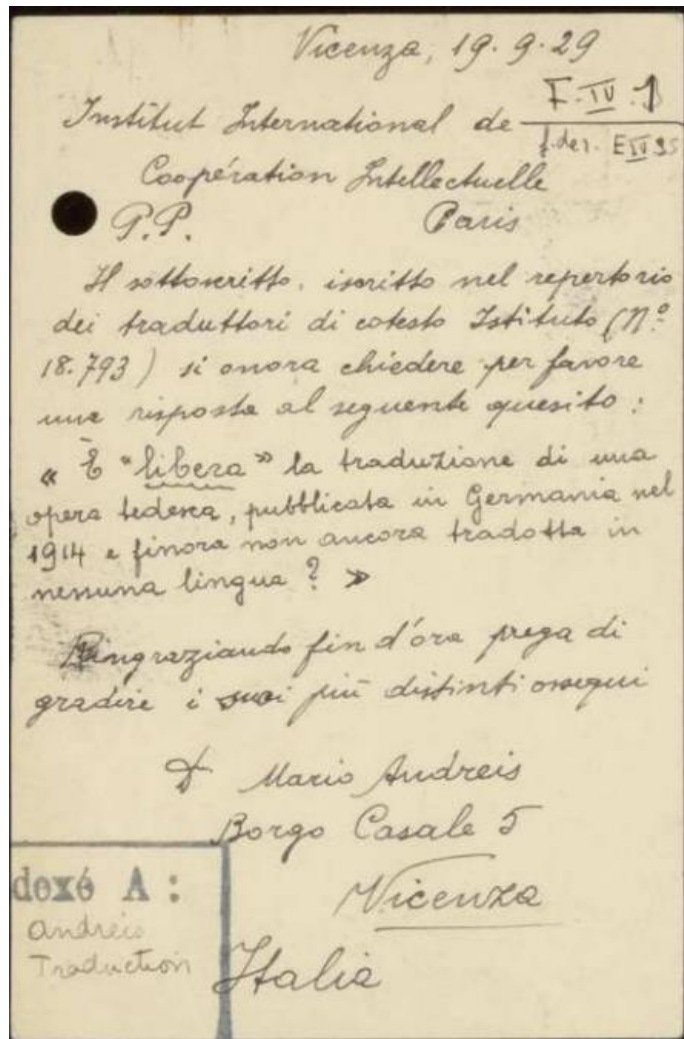 Vicenza, 19.9.29
F. IV. 1
Institut International de
f. der. E IV 35
Coopération Intellectuelle
P.P. Paris
Il sottoscritto, iscritto nel repertorio
dei traduttori di cotesto Istituto (Nº
18.793) si onora chiedere per favore
una risposta al seguente quesito:
« È "libera" la traduzione di una
opera tedesca, pubblicata in Germania nel
1914 e finora non ancora tradotta in
nessuna lingua? »
Ringraziando fin d'ora prega di
gradire i suoi più distinti ossequi
Mario Andreis
Borgo Casale 5
Vicenza
Italia
dexé A :
Andreis
Traduction